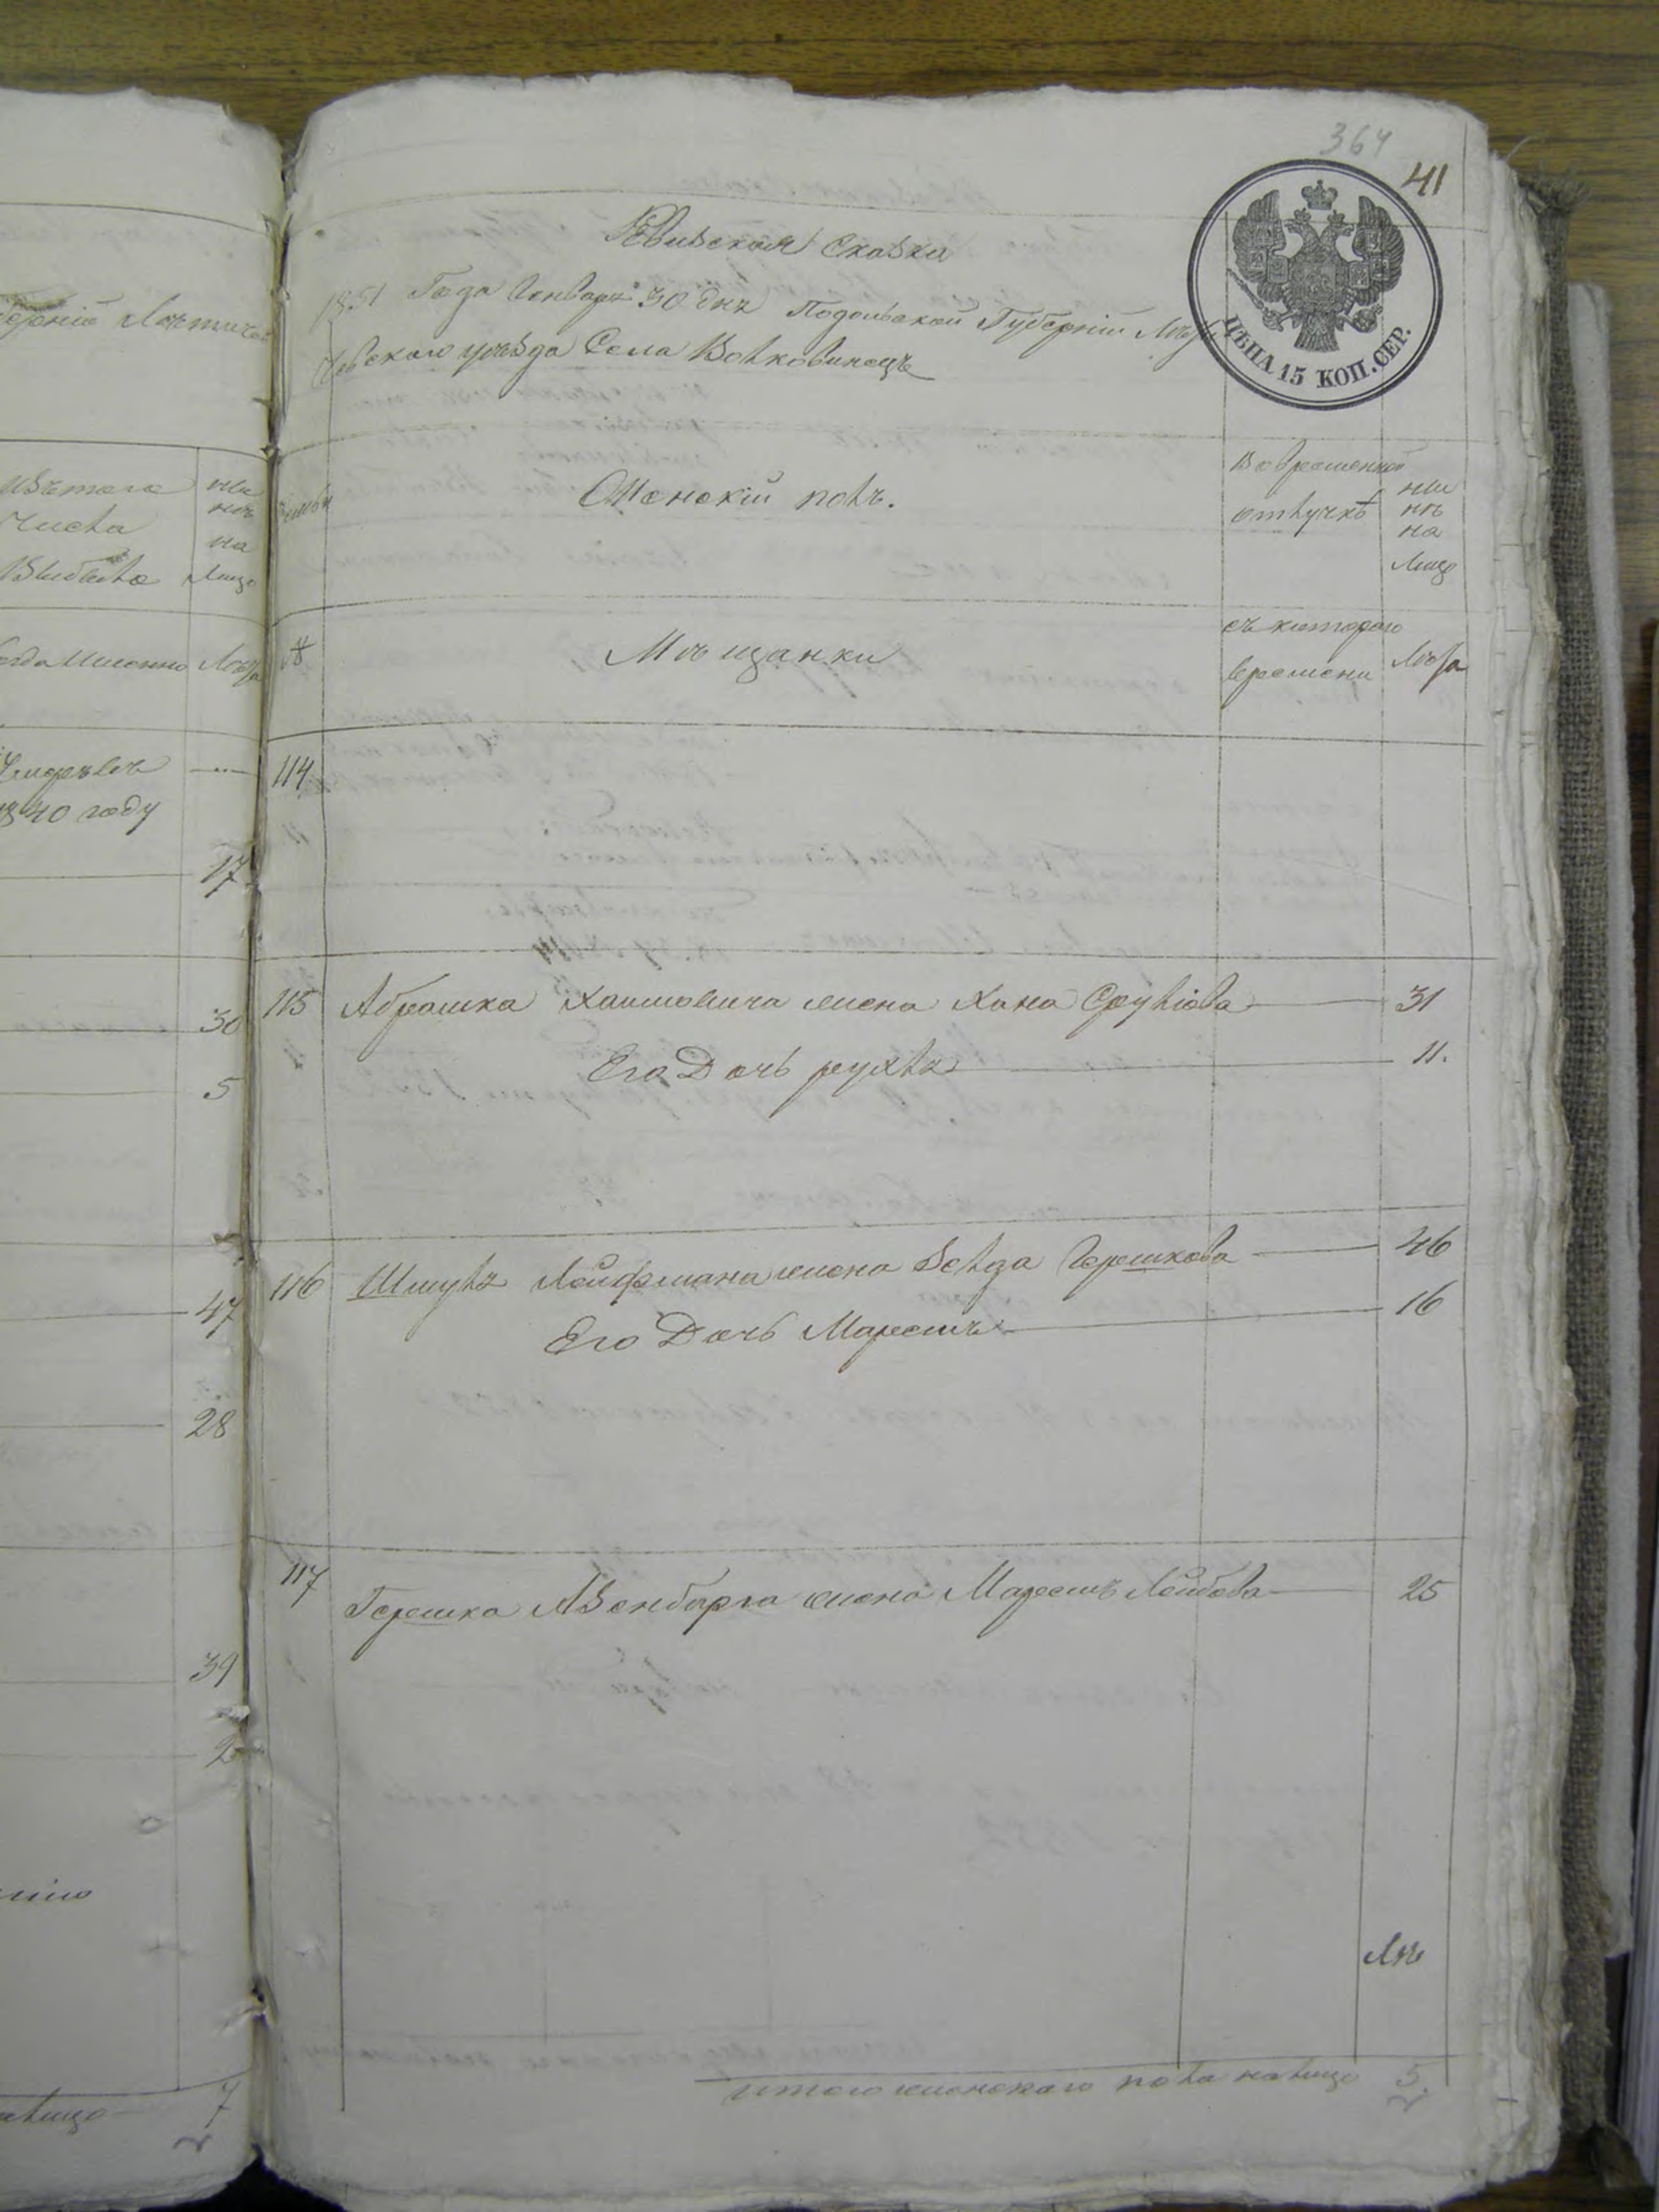 364
41
Ревизская Сказка
1851 Года Генваря 30 дня Подольской Губерніи Лѣти
чевского уѣзда Села Волковинецъ
ЦѢНА 15 КОП. СЕР.
семьи
Женскій полъ.
Вовременной
отлучкѣ
нынѣ
на
лицо
№
Мѣщанки
съ котораго
времени
Лѣта
114
115 Абрашка Хаимовича жена Хана Срулiова 31
Его Дочь рухля 11.
116 Шмуля Лейфмана жена Зелда Герешкова 46
Его Дочь Маремъ 16
117
Герешка Айзенбарга жена Маремъ Лейбова 25
итого женскаго пола налицо 5.
губерніи Летичев
изътого
числа
Выбыло
ны
нѣ
на
Лицо
когда именно Лѣта
Умеръ въ
1840 году
17
30
5
47
28
39
2
налицо 7